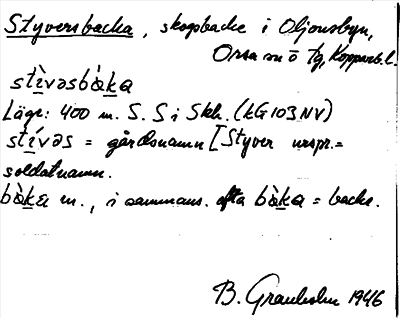 Styversbacka, skogsbacke i Oljonsbyn,
Orsa sn ö tg, Kopparb.l.
stìvəsbàka
Läge: 400 m. S. S i Skh. (kG103NV)
stívəs = gårdsnamn [Styver urspr. =
soldatnamn.
bàka m., i sammans. ofta bàka = backe.
B. Granholm 1946